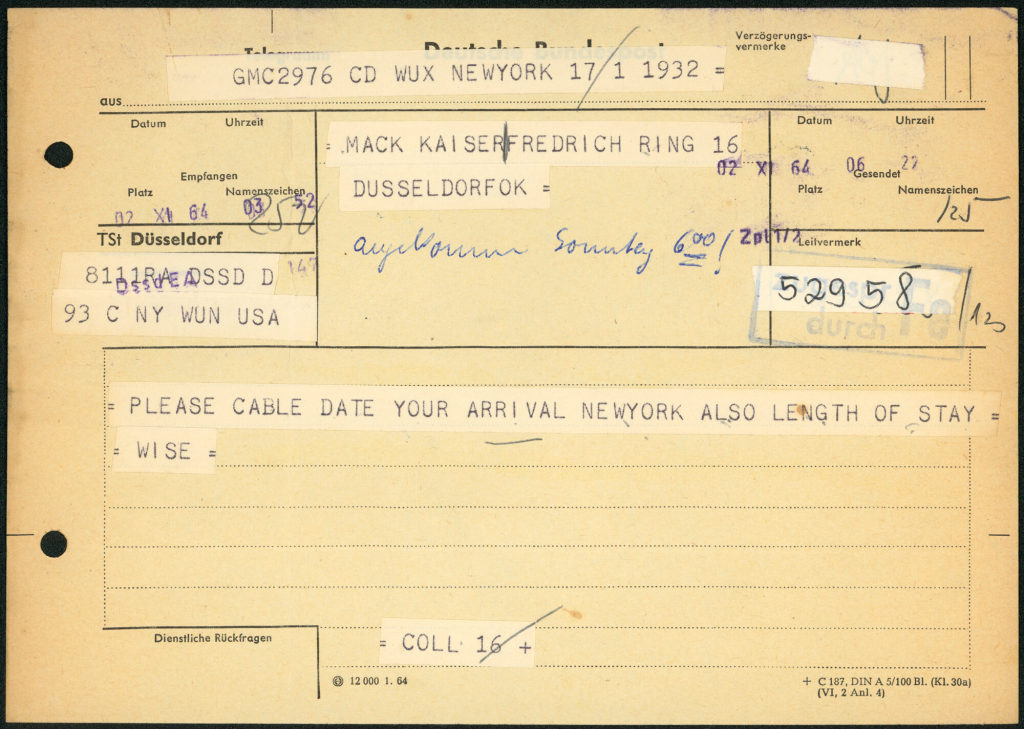 Telegramm Deutsche Bundespost
Verzögerungs-
vermerke
GMC2976 CD WUX NEWYORK 17/1 1932 =
aus
Datum Uhrzeit
Datum Uhrzeit
= MACK KAISERFREDRICH RING 16
02 XI 64 06 22
Empfangen
Gesendet
Platz Namenszeichen
Platz Namenszeichen
DUSSELDORFOK =
02 XI 64 03 52
252
/25
TSt Düsseldorf
angekommen Sonntag 6 00!
Zpl1/2
Leitvermerk
8111RA DSSD D 147
DssdEA
52958
/125
93 C NY WUN USA
Zugestellt
durch Fe
= PLEASE CABLE DATE YOUR ARRIVAL NEWYORK ALSO LENGTH OF STAY =
= WISE =
Dienstliche Rückfragen
= COLL 16 +
12 000 1. 64
+ C 187, DIN A 5/100 Bl. (Kl. 30a)
(VI, 2 Anl. 4)